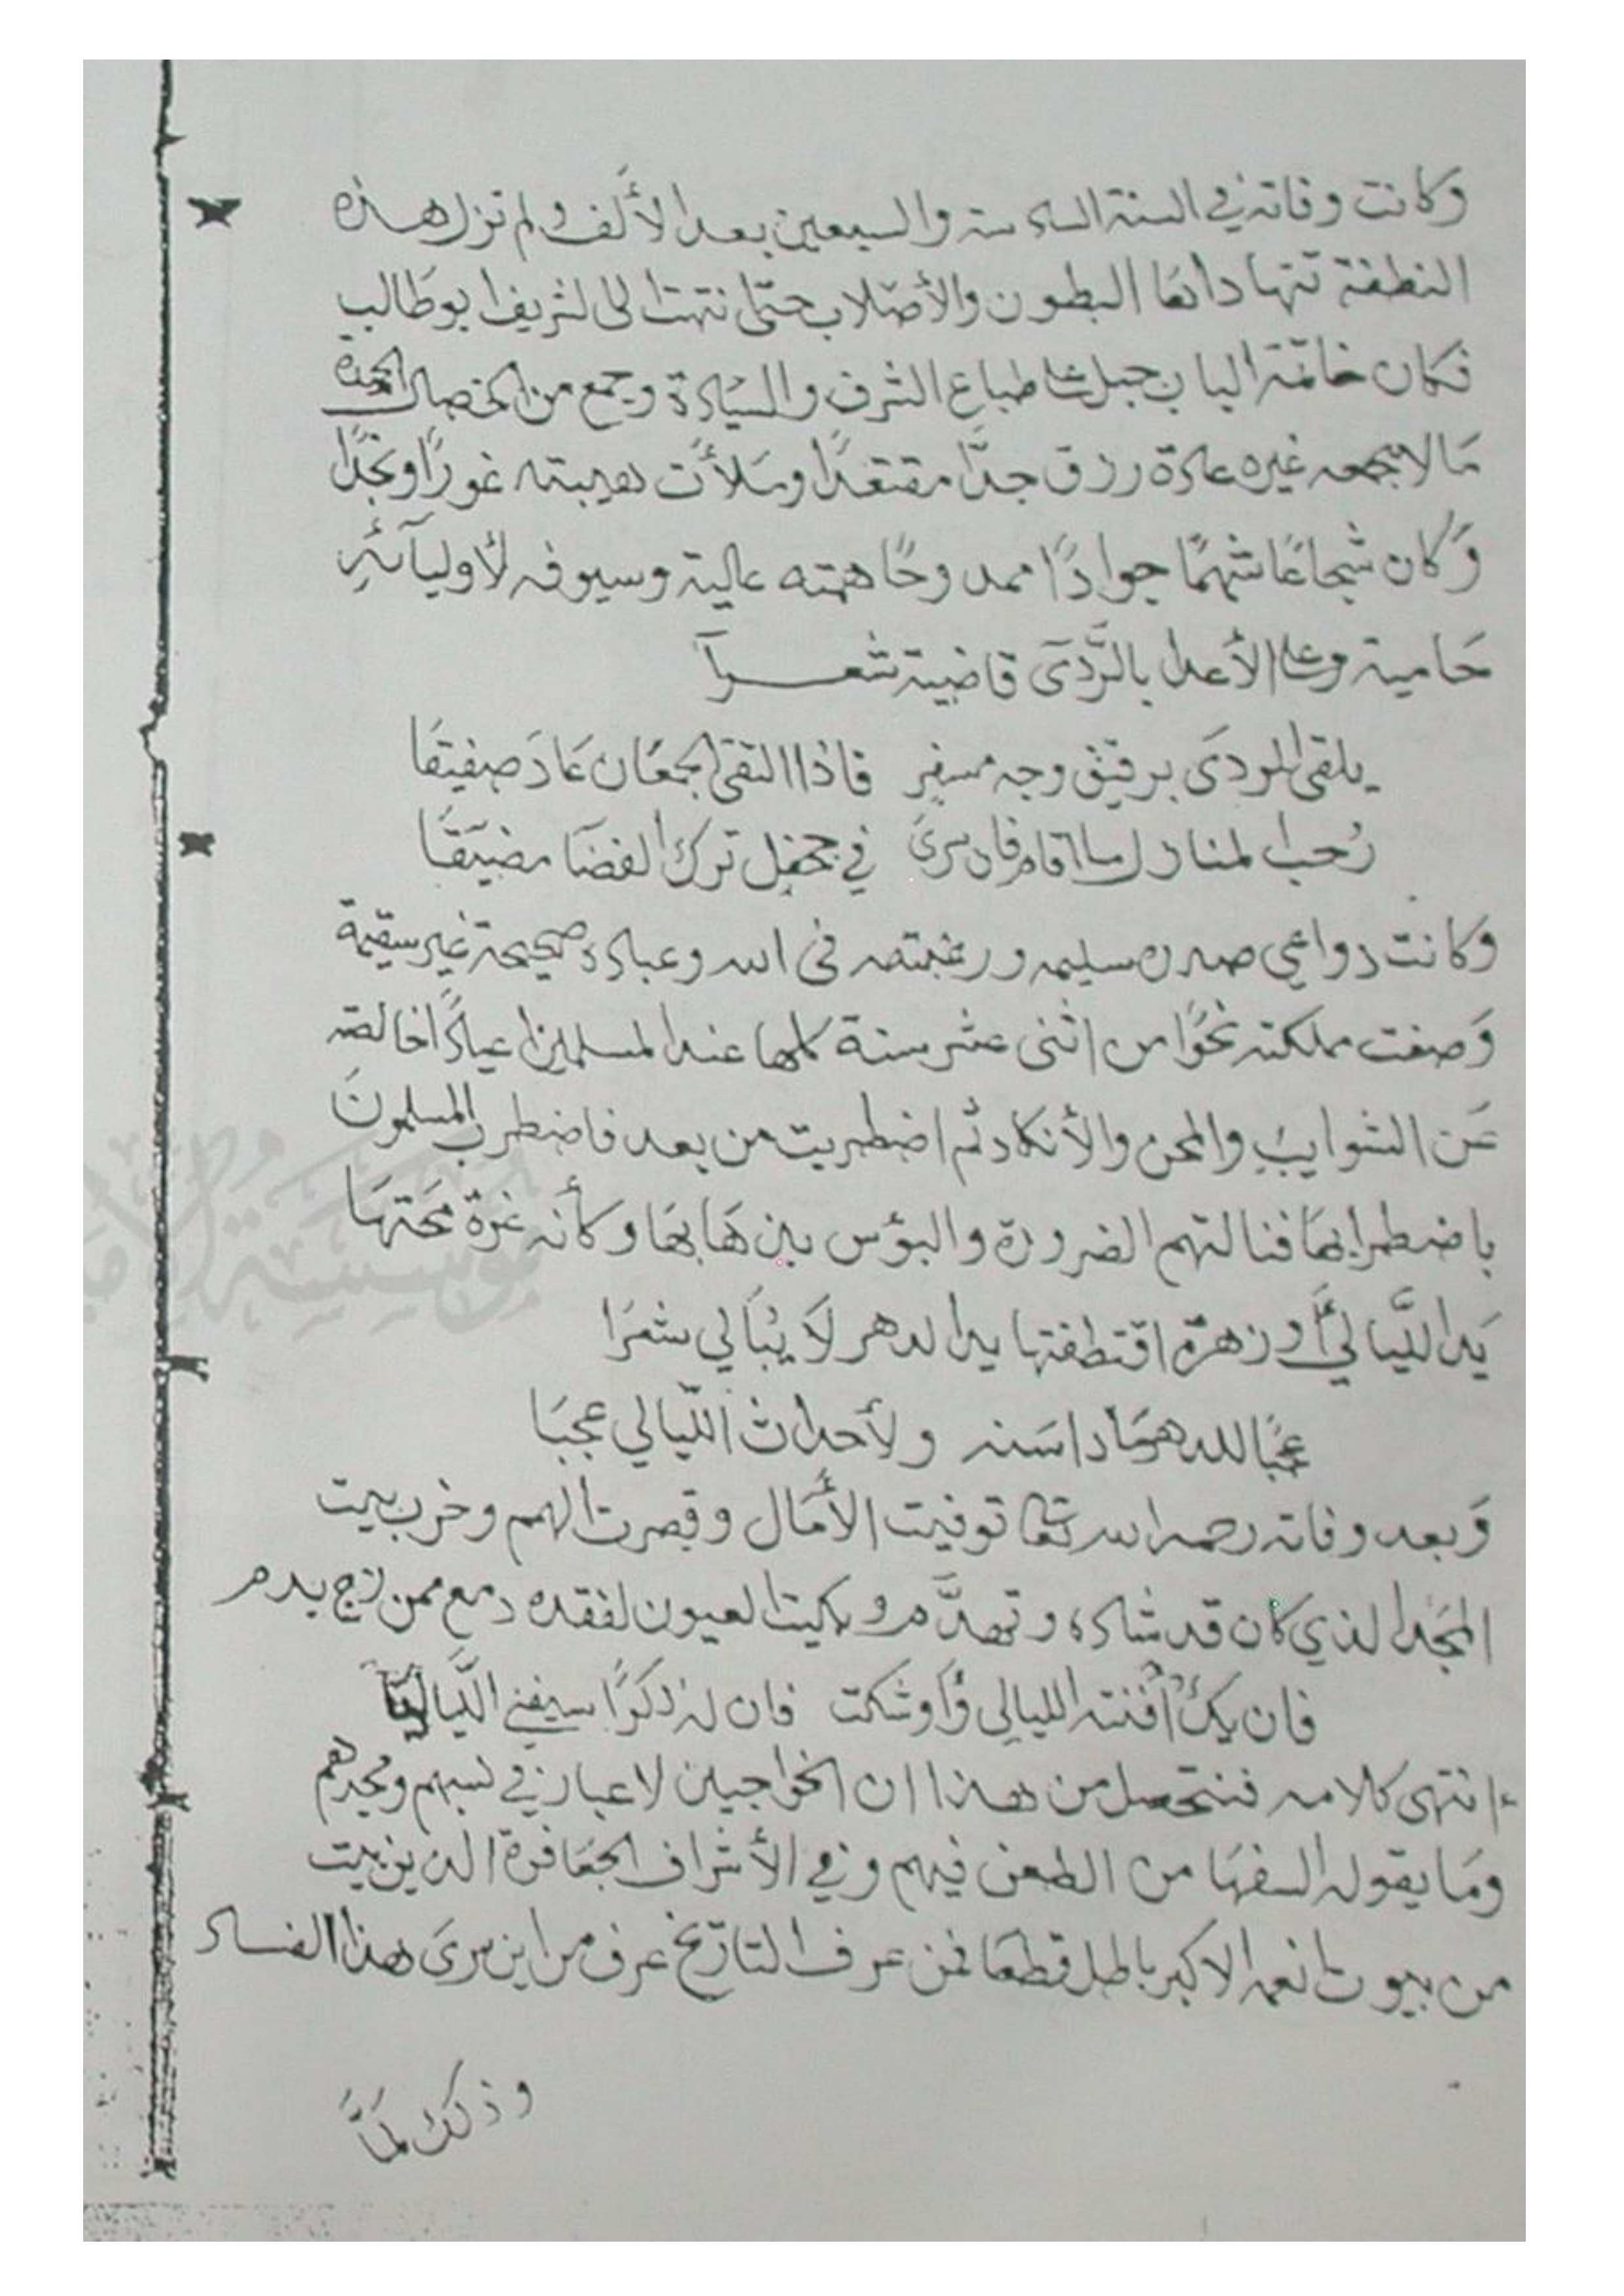 وكانت وفاته في السنة السادسة والسبعين بعد الألف ولم تزل هذه
النطفة تتهاداها البطون والأصلاب حتى انتهت الى الشريف ابو طالب
فكان خاتمة الباب جبل على طباع الشرف والسيادة وجمع من الخصال الحميدة
مَا لا يجمعه غيره عادة رزق جدًّا مقتعدًا وملأت هيبته غورًا ونجدًا
وَكان شجاعًا شهمًا جوادًا ممدوحًا همته عالية وسيوفه لأوليآئه
حَامية وعلى الأعدا بالرَّدَى قاضية شعـــرآ
يلقى المردى برقيق وجه مسفر فاذا التقى الجمعَان عَادَ صفيقَا
رُحب المنازل ما اقام فان سرى في جحفل ترك الفضَا مضيَقَا
وكانت دواعي صدره سليمه ورغبته فى الله وعباده صحيحة غير سقيمة
وَصفت مملكته نحوًا من اثنى عشر سنة كلها عند المسلمين اعيادًا خالصه
عَن الشوايب والمحن والأنكاد ثم اضطربت من بعد فاضطرب المسلمون
باضطرابهَا فنالتهم الضرورة والبؤس بذهَابهَا وكأنه غرة محتهَا
يَد الليَالي أَو زهرة اقتطفتها يد الدهر لاَ يُبَالي شعرَا
عجبًا للدهر مَاداسَنه ولأحداث الليَالي عجبَا
وَبعد وفاته رحمه الله تعالى توفيت الأمَال وقصرت الهمم وخرب بيت
المجَد الذي كان قد شاده وتهدَّم وبكيت العيون لفقده دمع ممزج بدم
فان يكُ أفنته الليالي وَأوشكت فان له ذكرًا سيفني اللَّياليَا
انتهى كلامه فنتحصل من هذا ان الخواجيين لا عبار في نسبهم ومجدهم
ومَا يقوله السفهَا من الطعن فيهم وفي الأشراف الجعَافرة الذين بيت
من بيوتات نعمه الاكبر باطل قطعَا فمن عرف التاريخ عرف من اين سرى هذا الفساد
وذلك لمَّا